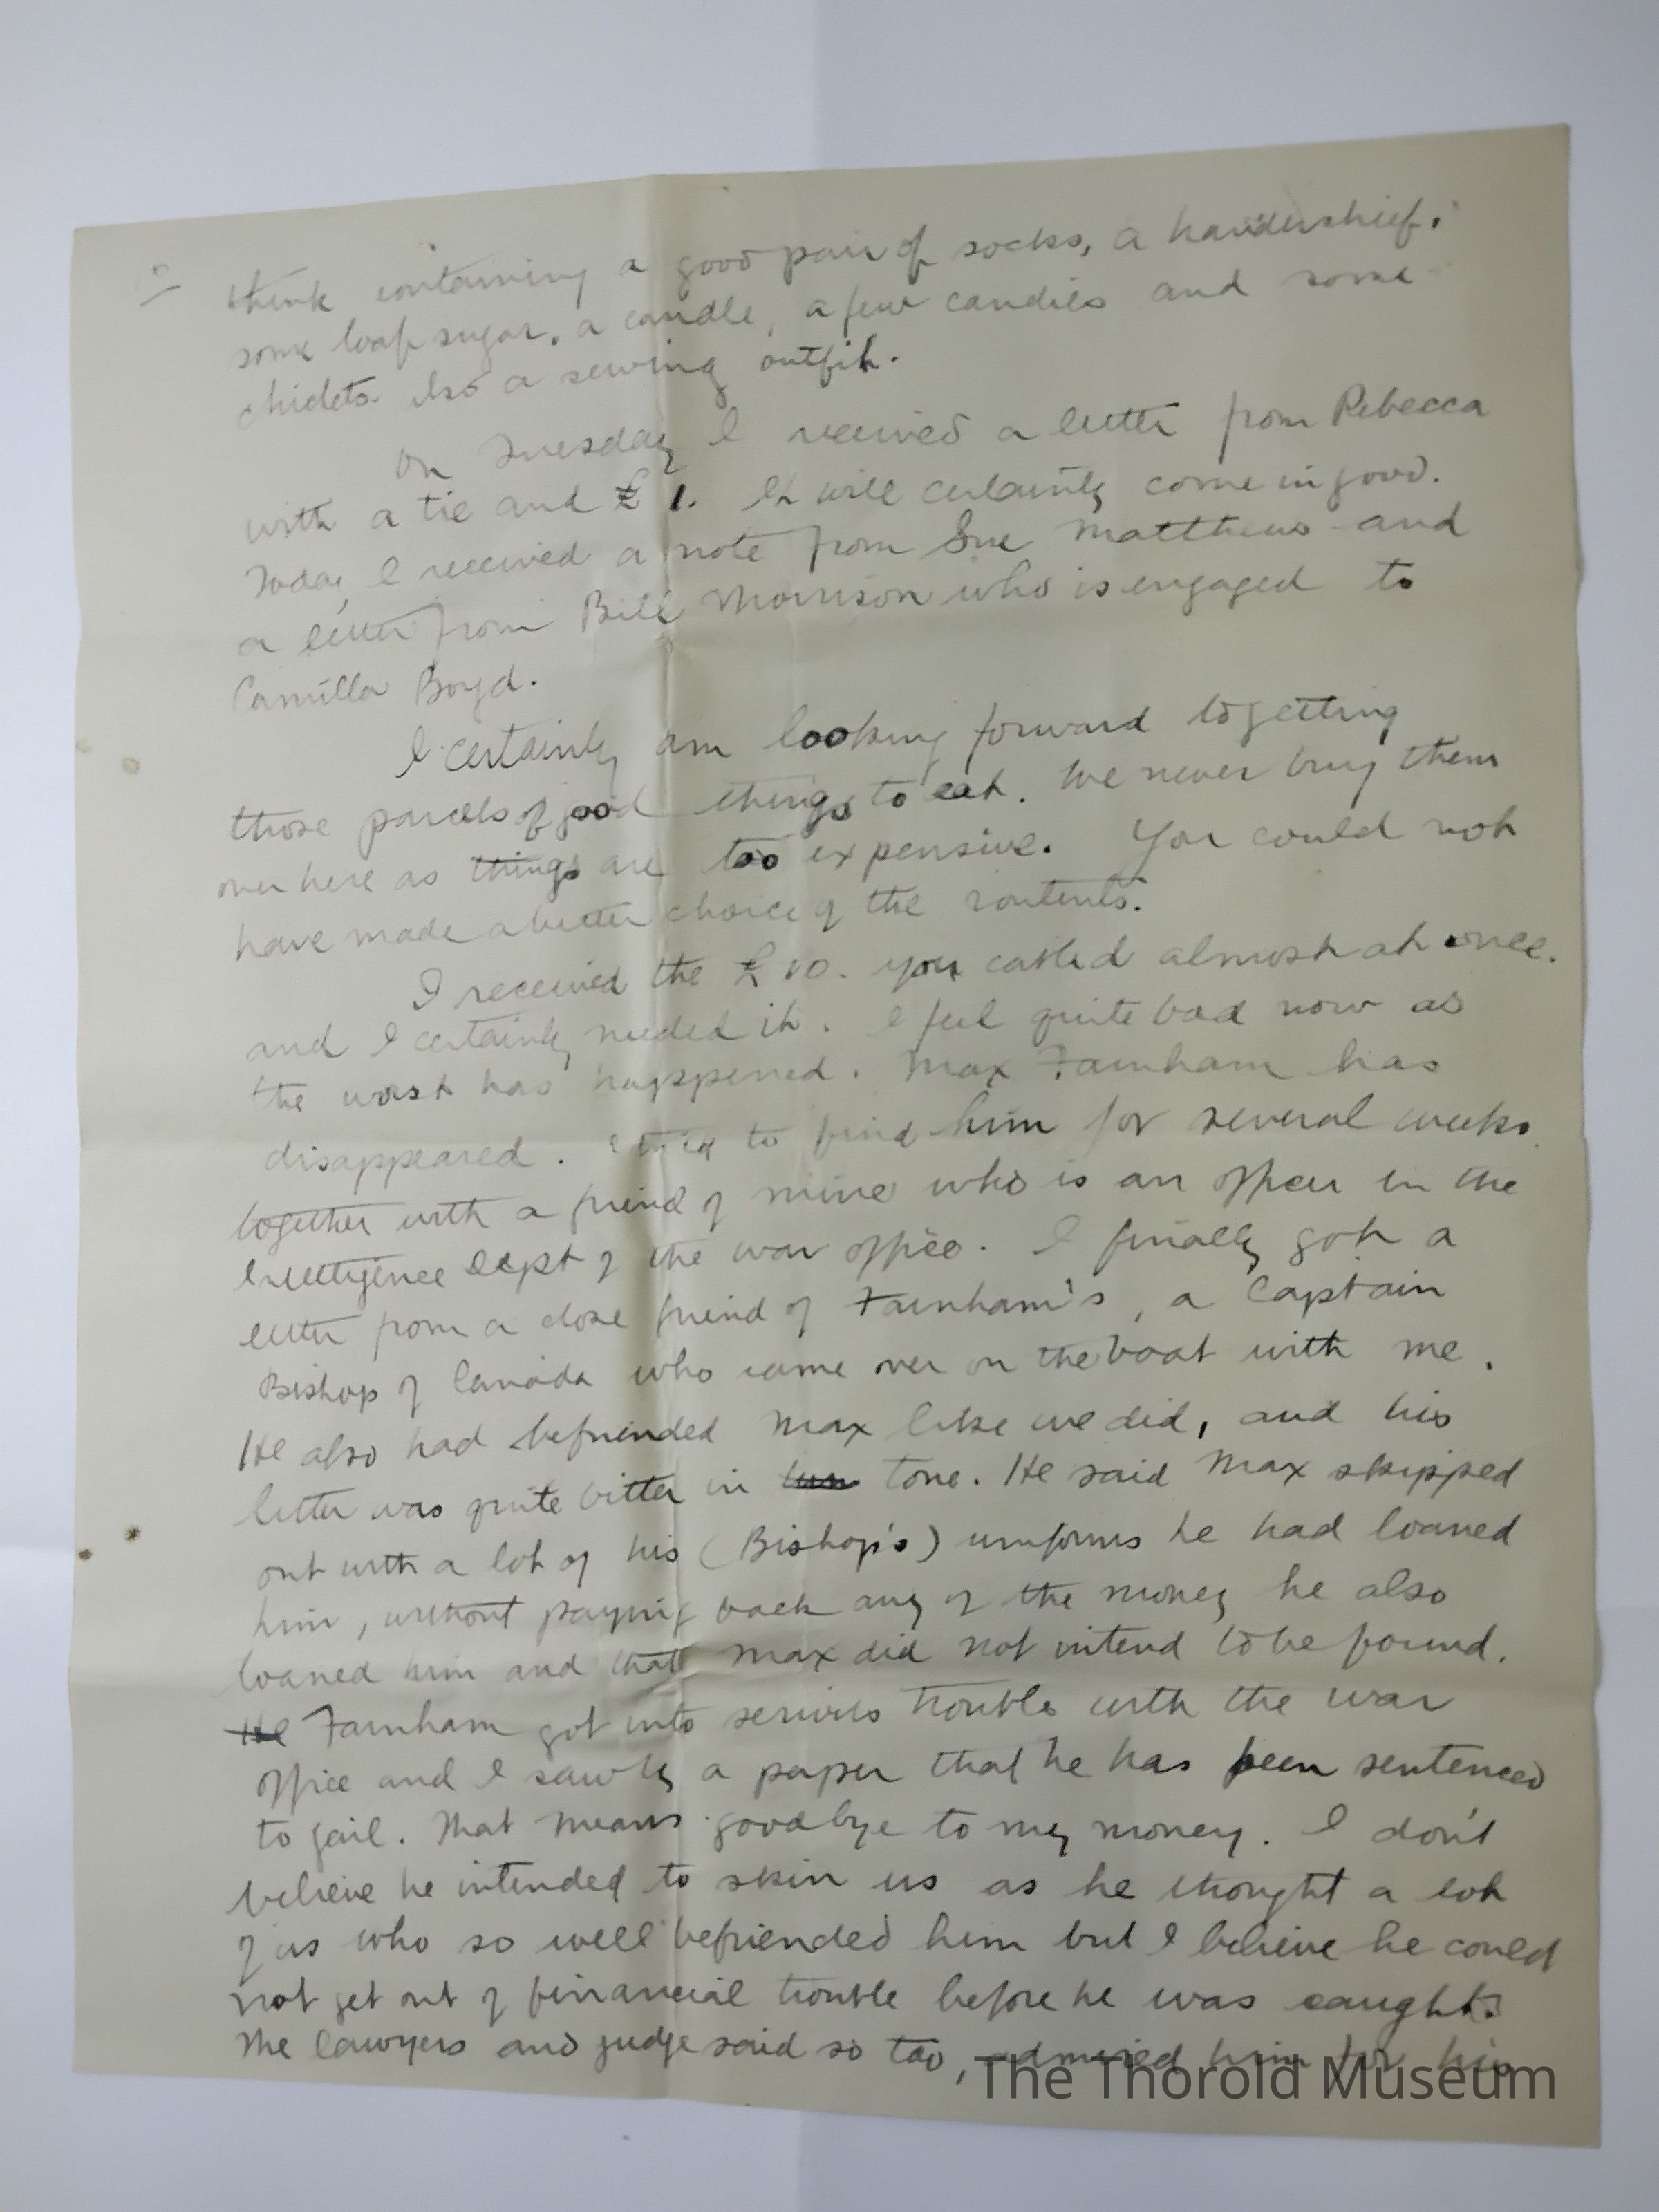 think containing a good pair of socks, a handerchief,
some loaf sugar, a candle, a few candies and some
chiclets. Also a sewing outfit.
On Tuesday I received a letter from Rebecca
with a tie and £1. It will certainly come in good.
Today I received a note from Sue Matthews and
a letter from Bill Morrison who is engaged to
Camilla Boyd.
I certainly am looking forward to getting
those parcels of good things to eat. We never buy them
over here as things are too expensive. You could not
have made a better choice of the contents.
I received the £10. you cabled almost at once.
and I certainly needed it. I feel quite bad now as
the worst has happened. Max Farnham has
disappeared. I tried to find him for several weeks
together with a friend of mine who is an officer in the
Intelligence Dept of the war office. I finally got a
letter from a close friend of Farnham's, a Captain
Bishop of Canada who came over on the boat with me.
He also had befriended Max like we did, and his
letter was quite bitter in tone. He said Max skipped
out with a lot of his (Bishop's) uniforms he had loaned
him, without paying back any of the money he also
loaned him and that Max did not intend to be found.
He Farnham got into serious trouble with the war
office and I saw by a paper that he has been sentenced
to jail. That means goodbye to my money. I don't
believe he intended to skin us as he thought a lot
of us who so well befriended him but I believe he could
not get out of financial trouble before he was caught.
The lawyers and judge said so too, admired him for his
The Thorold Museum